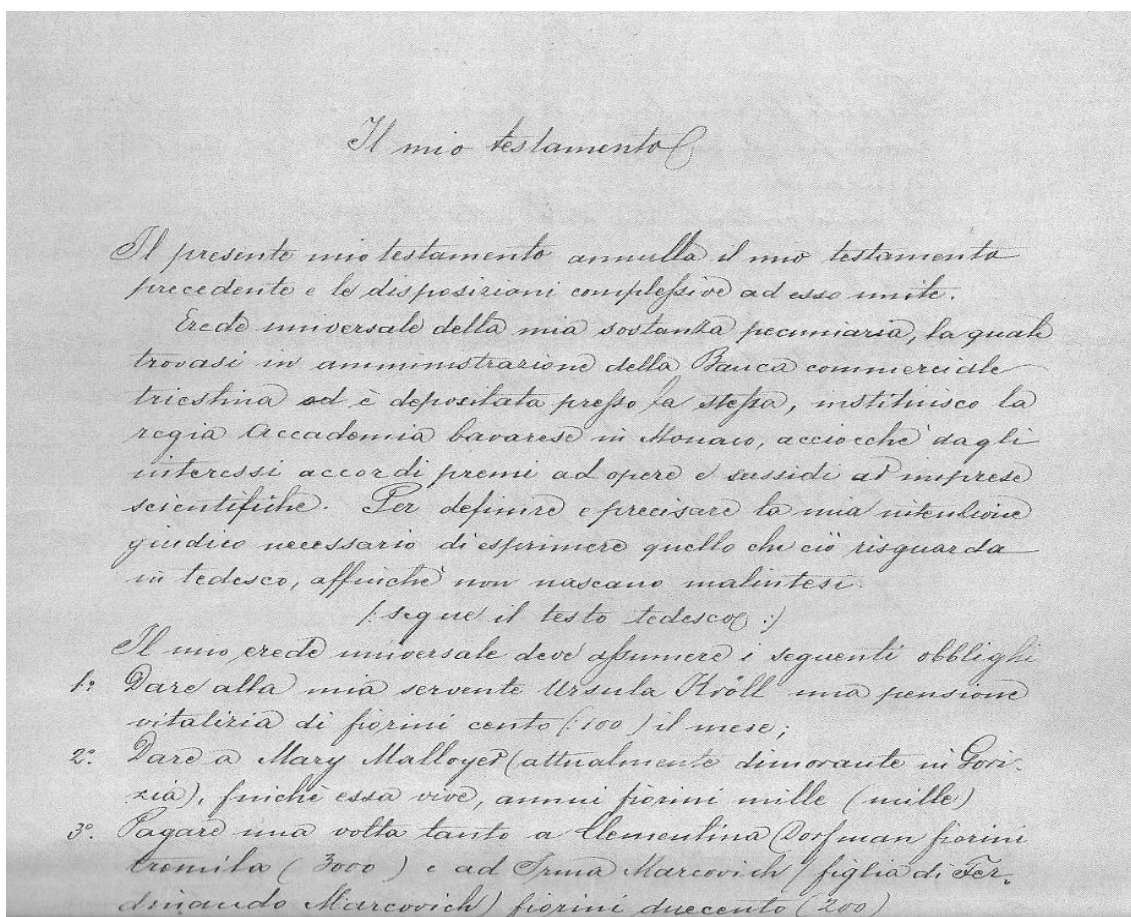 Il mio testamento
Il presente mio testamento annulla il mio testamento
precedente e le disposizioni complessive ad esso unite.
Erede universale della mia sostanza pecuniaria, la quale
trovasi in amministrazione della Banca commerciale
triestina ed è depositata presso la stessa, instituisco la
regia Accademia bavarese in Monaco, acciocchè dagli
interessi accordi premi ad opere e sussidi ad imprese
scientifiche. Per definire e precisare la mia intenzione
giudico necessario di esprimere quello che ciò risguarda
in tedesco, affinchè non nascano malintesi.
/: segue il testo tedesco :/
Il mio erede universale deve assumere i seguenti obblighi
1º Dare alla mia servente Ursula Kröll una pensione
vitalizia di fiorini cento (:100) il mese;
2º. Dare a Mary Malloyer (attualmente dimorante in Gori-
zia), finichè essa vive, annui fiorini mille (mille)
3º. Pagare una volta tanto a Clementina Dorfman fiorini
tremila (3000) e ad Irma Marcovich / figlia di Fer-
dinando Marcovich) fiorini duecento (200)